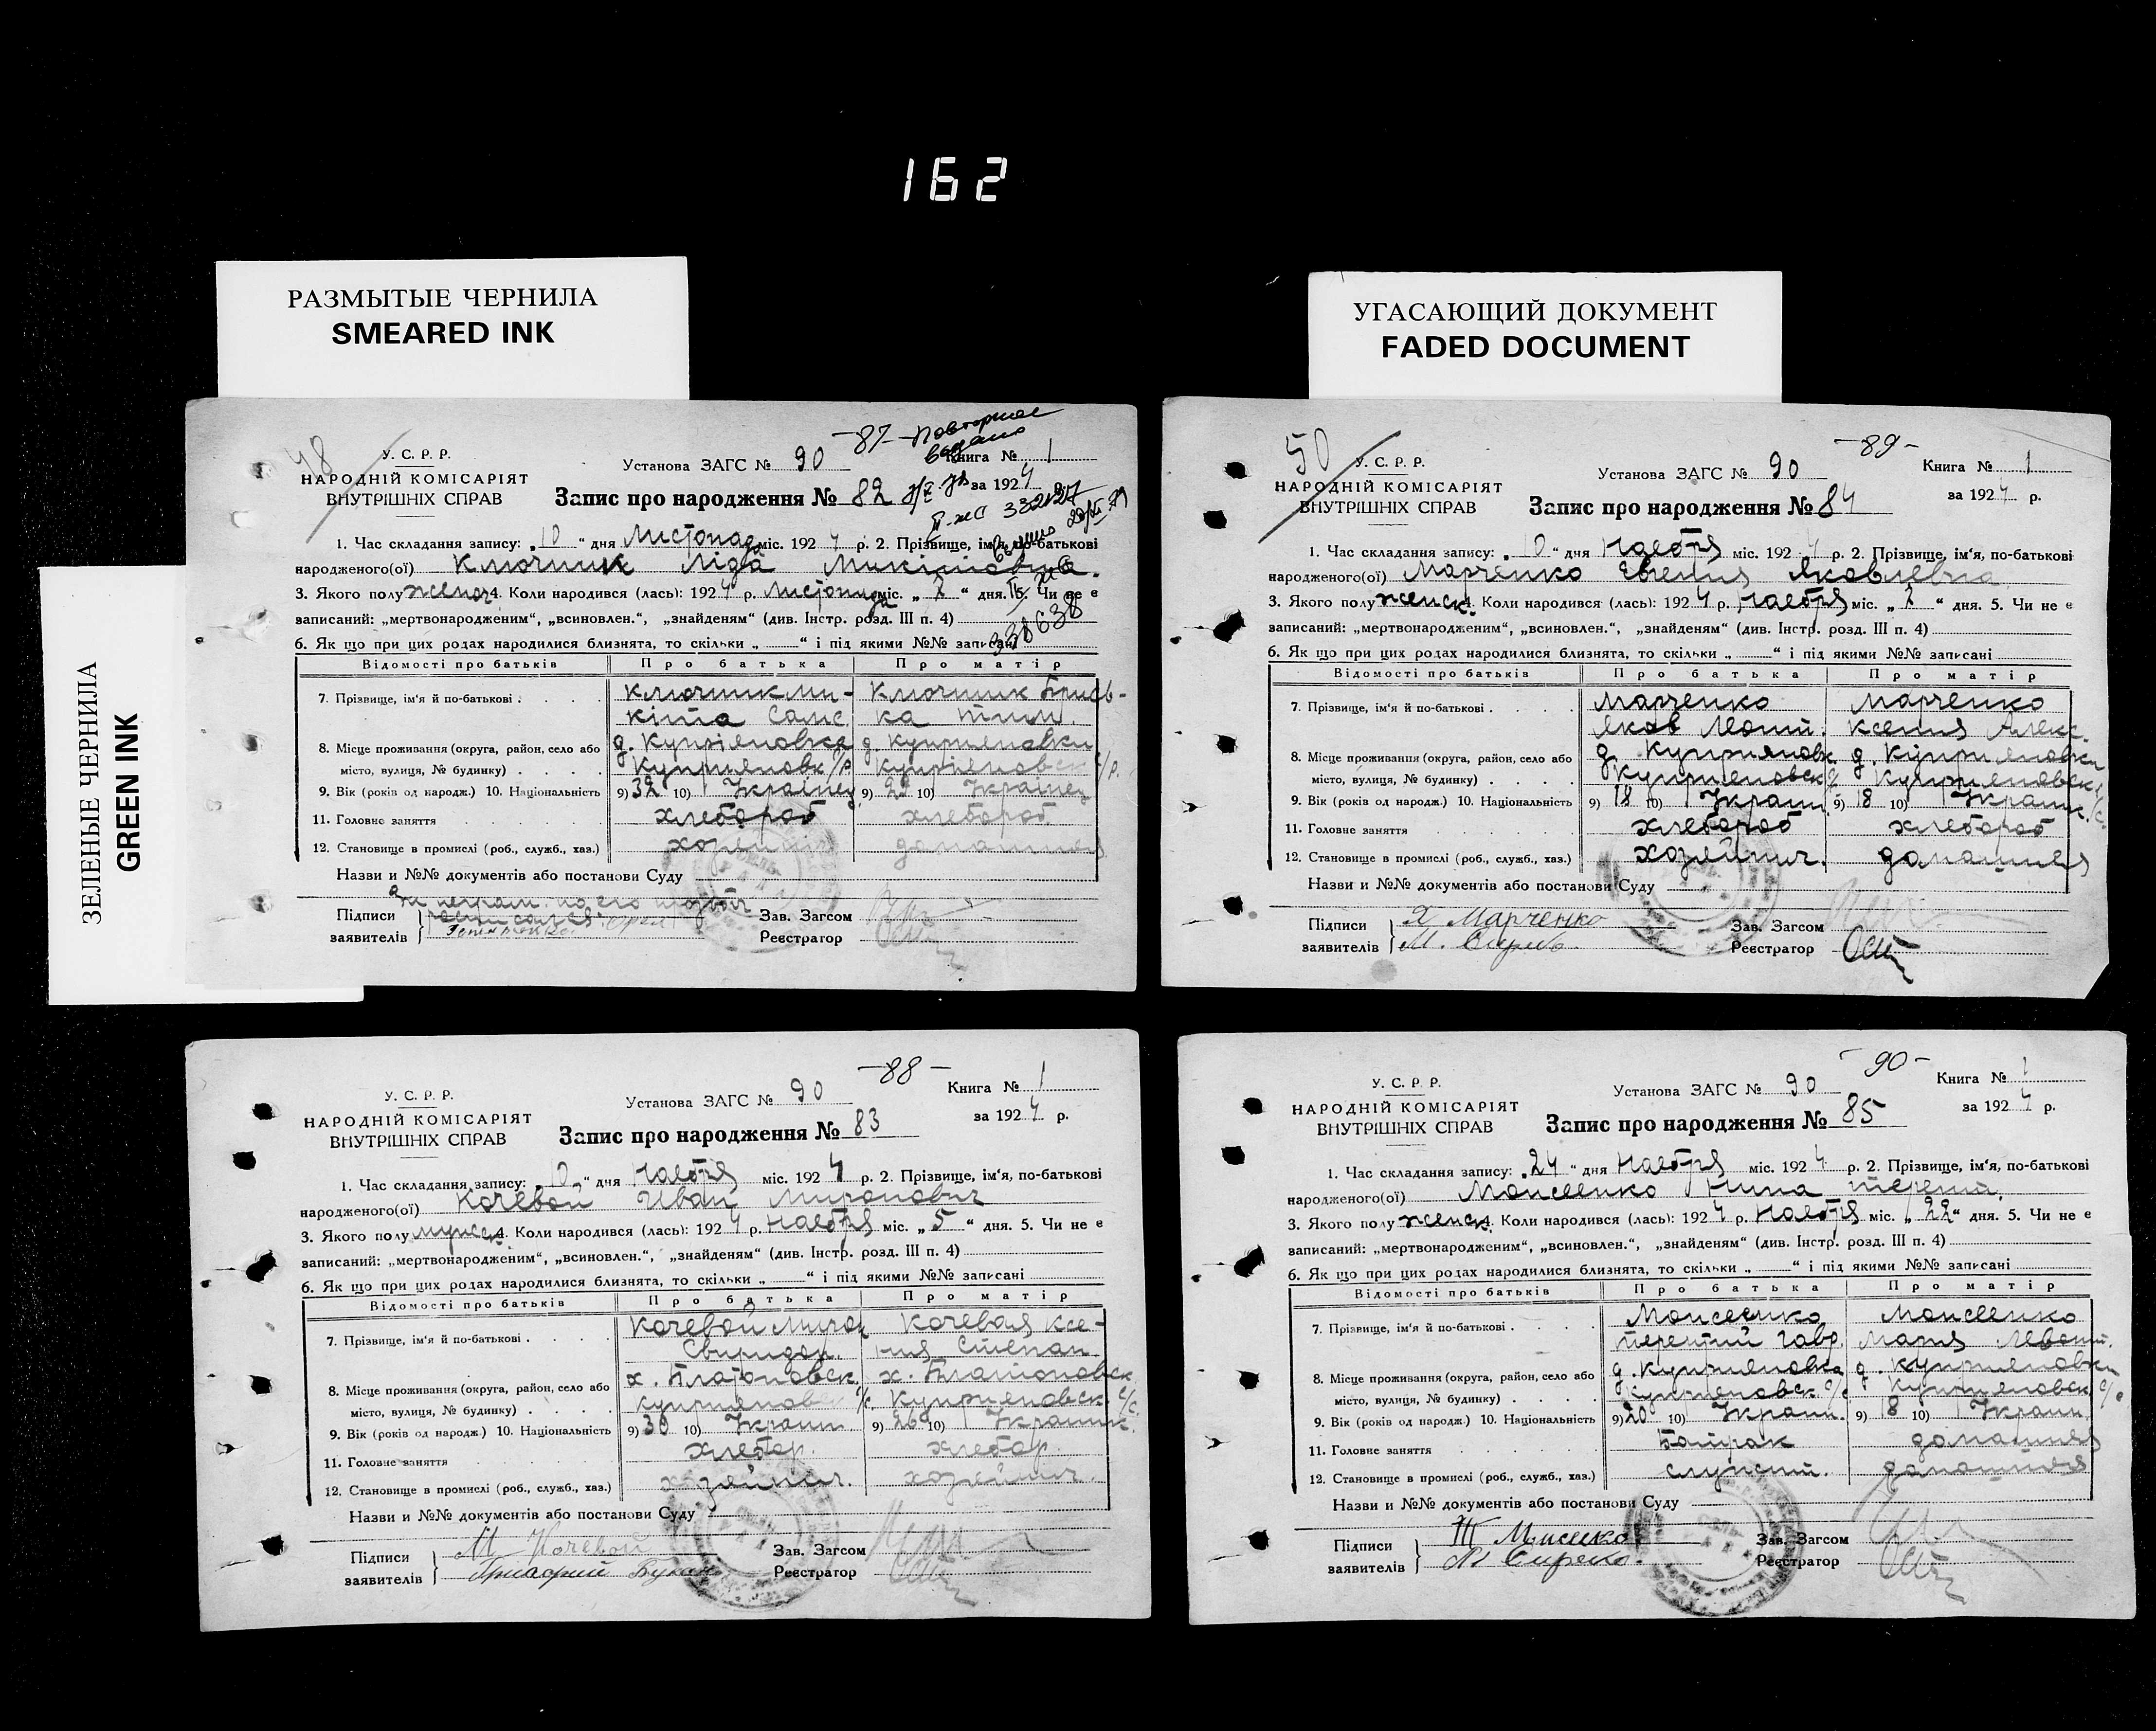 162
РАЗМЫТЫЕ ЧЕРНИЛА
SMEARED INK
УГАСАЮЩИЙ ДОКУМЕНТ
FADED DOCUMENT
ЗЕЛЕНЫЕ ЧЕРНИЛА
GREEN INK
48
У. С. Р. Р.
НАРОДНІЙ КОМІСАРІЯТ
ВНУТРІШНІХ СПРАВ
-87- Повторное
видано
Установа ЗАГС № 90
Книга № 1
Запис про народження № 82
за 1924
II-ЖС 332127
1. Час складання запису: „10“ дня Листопад міс. 1924 р. 2. Прізвище, ім'я, по-батькові
народженого(ої) Ключник Ліда Микітовна.
3. Якого полу женск 4. Коли народився (лась): 1924 р. Листопада міс. „2“ дня. 5. Чи не є
записаний: „мертвонародженим“, „всиновлен.“, „знайденям“ (див. Інстр. розд. III п. 4)
338638
6. Як що при цих родах народилися близнята, то скільки „ “ і під якими №№ записані
Відомості про батьків Про батька Про матір
7. Прізвище, ім'я й по-батькові Ключник Ми- Ключник
кіта Самс. ка Тим.
8. Місце проживання (округа, район, село або д. Купріяновка д. Куприяновки
місто, вулиця, № будинку) Куприяновк с/р. Куприяновск с/р.
9. Вік (років од народж.) 10. Національність 9) 32 10) Українец 9) 29 10) Українец
11. Головне заняття хлебороб хлебороб
12. Становище в промислі (роб., служб., хаз.) хозяин домашняя
Назви и №№ документів або постанови Суду
Підписи
заявителів
Зав. Загсом
Реєстратор
50
У. С. Р. Р.
НАРОДНІЙ КОМІСАРІЯТ
ВНУТРІШНІХ СПРАВ
-89-
Установа ЗАГС № 90
Книга № 1
Запис про народження № 84
за 1924 р.
1. Час складання запису: „10“ дня Наебря міс. 1924 р. 2. Прізвище, ім'я, по-батькові
народженого(ої) Марченко Евгения Яковлевна
3. Якого полу женск. 4. Коли народився (лась): 1924 р. Наебря міс. „2“ дня. 5. Чи не є
записаний: „мертвонародженим“, „всиновлен.“, „знайденям“ (див. Інстр. розд. III п. 4)
6. Як що при цих родах народилися близнята, то скільки „ “ і під якими №№ записані
Відомості про батьків Про батька Про матір
7. Прізвище, ім'я й по-батькові Марченко Марченко
Яков Леонт. Ксения Алекс.
8. Місце проживання (округа, район, село або д. Куприяновк. д. Куприяновки
місто, вулиця, № будинку) Куприяновск с/с Куприяновск. с/с.
9. Вік (років од народж.) 10. Національність 9) 18 10) Украин. 9) 18 10) Украин.
11. Головне заняття хлебороб хлебороб
12. Становище в промислі (роб., служб., хаз.) хозяйнич. домашняя
Назви и №№ документів або постанови Суду
Підписи Я Марченко Зав. Загсом
заявителів М. Реєстратор
У. С. Р. Р.
НАРОДНІЙ КОМІСАРІЯТ
ВНУТРІШНІХ СПРАВ
-88-
Установа ЗАГС № 90
Книга № 1
Запис про народження № 83
за 1924 р.
1. Час складання запису: „10“ дня Наебря міс. 1924 р. 2. Прізвище, ім'я, по-батькові
народженого(ої) Кочевой Иван Миронович
3. Якого полу мужск 4. Коли народився (лась): 1924 р. Наебря міс. „5“ дня. 5. Чи не є
записаний: „мертвонародженим“, „всиновлен.“, „знайденям“ (див. Інстр. розд. III п. 4)
6. Як що при цих родах народилися близнята, то скільки „ “ і під якими №№ записані
Відомості про батьків Про батька Про матір
7. Прізвище, ім'я й по-батькові Кочевой Мирон Кочевая Ксе-
Свиридон. ния Степан
8. Місце проживання (округа, район, село або х. Платоновск. х. Платоновск.
місто, вулиця, № будинку) Куприяновск с/с. Куприяновск. с/с.
9. Вік (років од народж.) 10. Національність 9) 30 10) Украин. 9) 26 10) Украин.
11. Головне заняття хлебор. хлебор.
12. Становище в промислі (роб., служб., хаз.) хозяйнич. хозяйнич.
Назви и №№ документів або постанови Суду
Підписи М Кочевой Зав. Загсом
заявителів Григорий Реєстратор
У. С. Р. Р.
НАРОДНІЙ КОМІСАРІЯТ
ВНУТРІШНІХ СПРАВ
-90-
Установа ЗАГС № 90
Книга № 1
Запис про народження № 85
за 1924 р.
1. Час складання запису: „24“ дня Наебря міс. 1924 р. 2. Прізвище, ім'я, по-батькові
народженого(ої) Моисеенко Нина Терент.
3. Якого полу женск. 4. Коли народився (лась): 1924 р. Наебря міс. „22“ дня. 5. Чи не є
записаний: „мертвонародженим“, „всиновлен.“, „знайденям“ (див. Інстр. розд. III п. 4)
6. Як що при цих родах народилися близнята, то скільки „ “ і під якими №№ записані
Відомості про батьків Про батька Про матір
7. Прізвище, ім'я й по-батькові Моисеенко Моисеенко
Терентий Гавр. Мария Левонт.
8. Місце проживання (округа, район, село або д. Куприяновка д. Куприяновки
місто, вулиця, № будинку) Куприяновск с/с Куприяновск с/с
9. Вік (років од народж.) 10. Національність 9) 20 10) Украин. 9) 18 10) Украин.
11. Головне заняття Батрак домашняя
12. Становище в промислі (роб., служб., хаз.) служит. домашняя
Назви и №№ документів або постанови Суду
Підписи Т Мисенко Зав. Загсом
заявителів Реєстратор